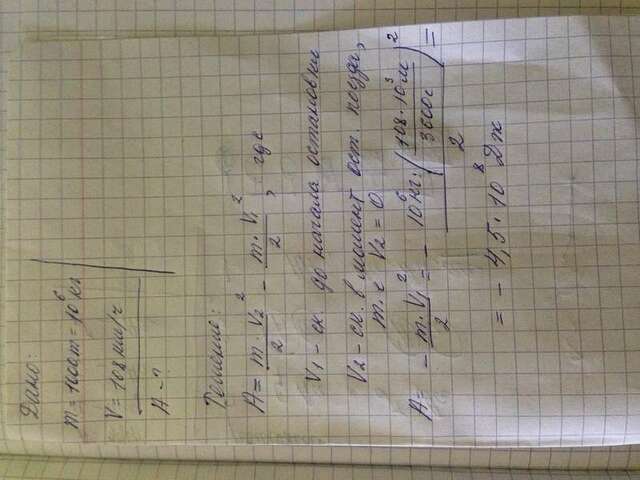 Дано:
m = 1000т = 10⁶ кг
V = 108 км/ч
A - ?
Решение:
A = m · V₂²/2 - m · V₁²/2, где
V₁ - ск. до начала остановки
V₂ - ск. в момент ост. поезда,
т.е V₂ = 0
A = - m · V₁²/2 = - 10⁶ кг · (108 · 10³ м/3600с)²/2 =
= - 4,5 · 10⁸ Дж